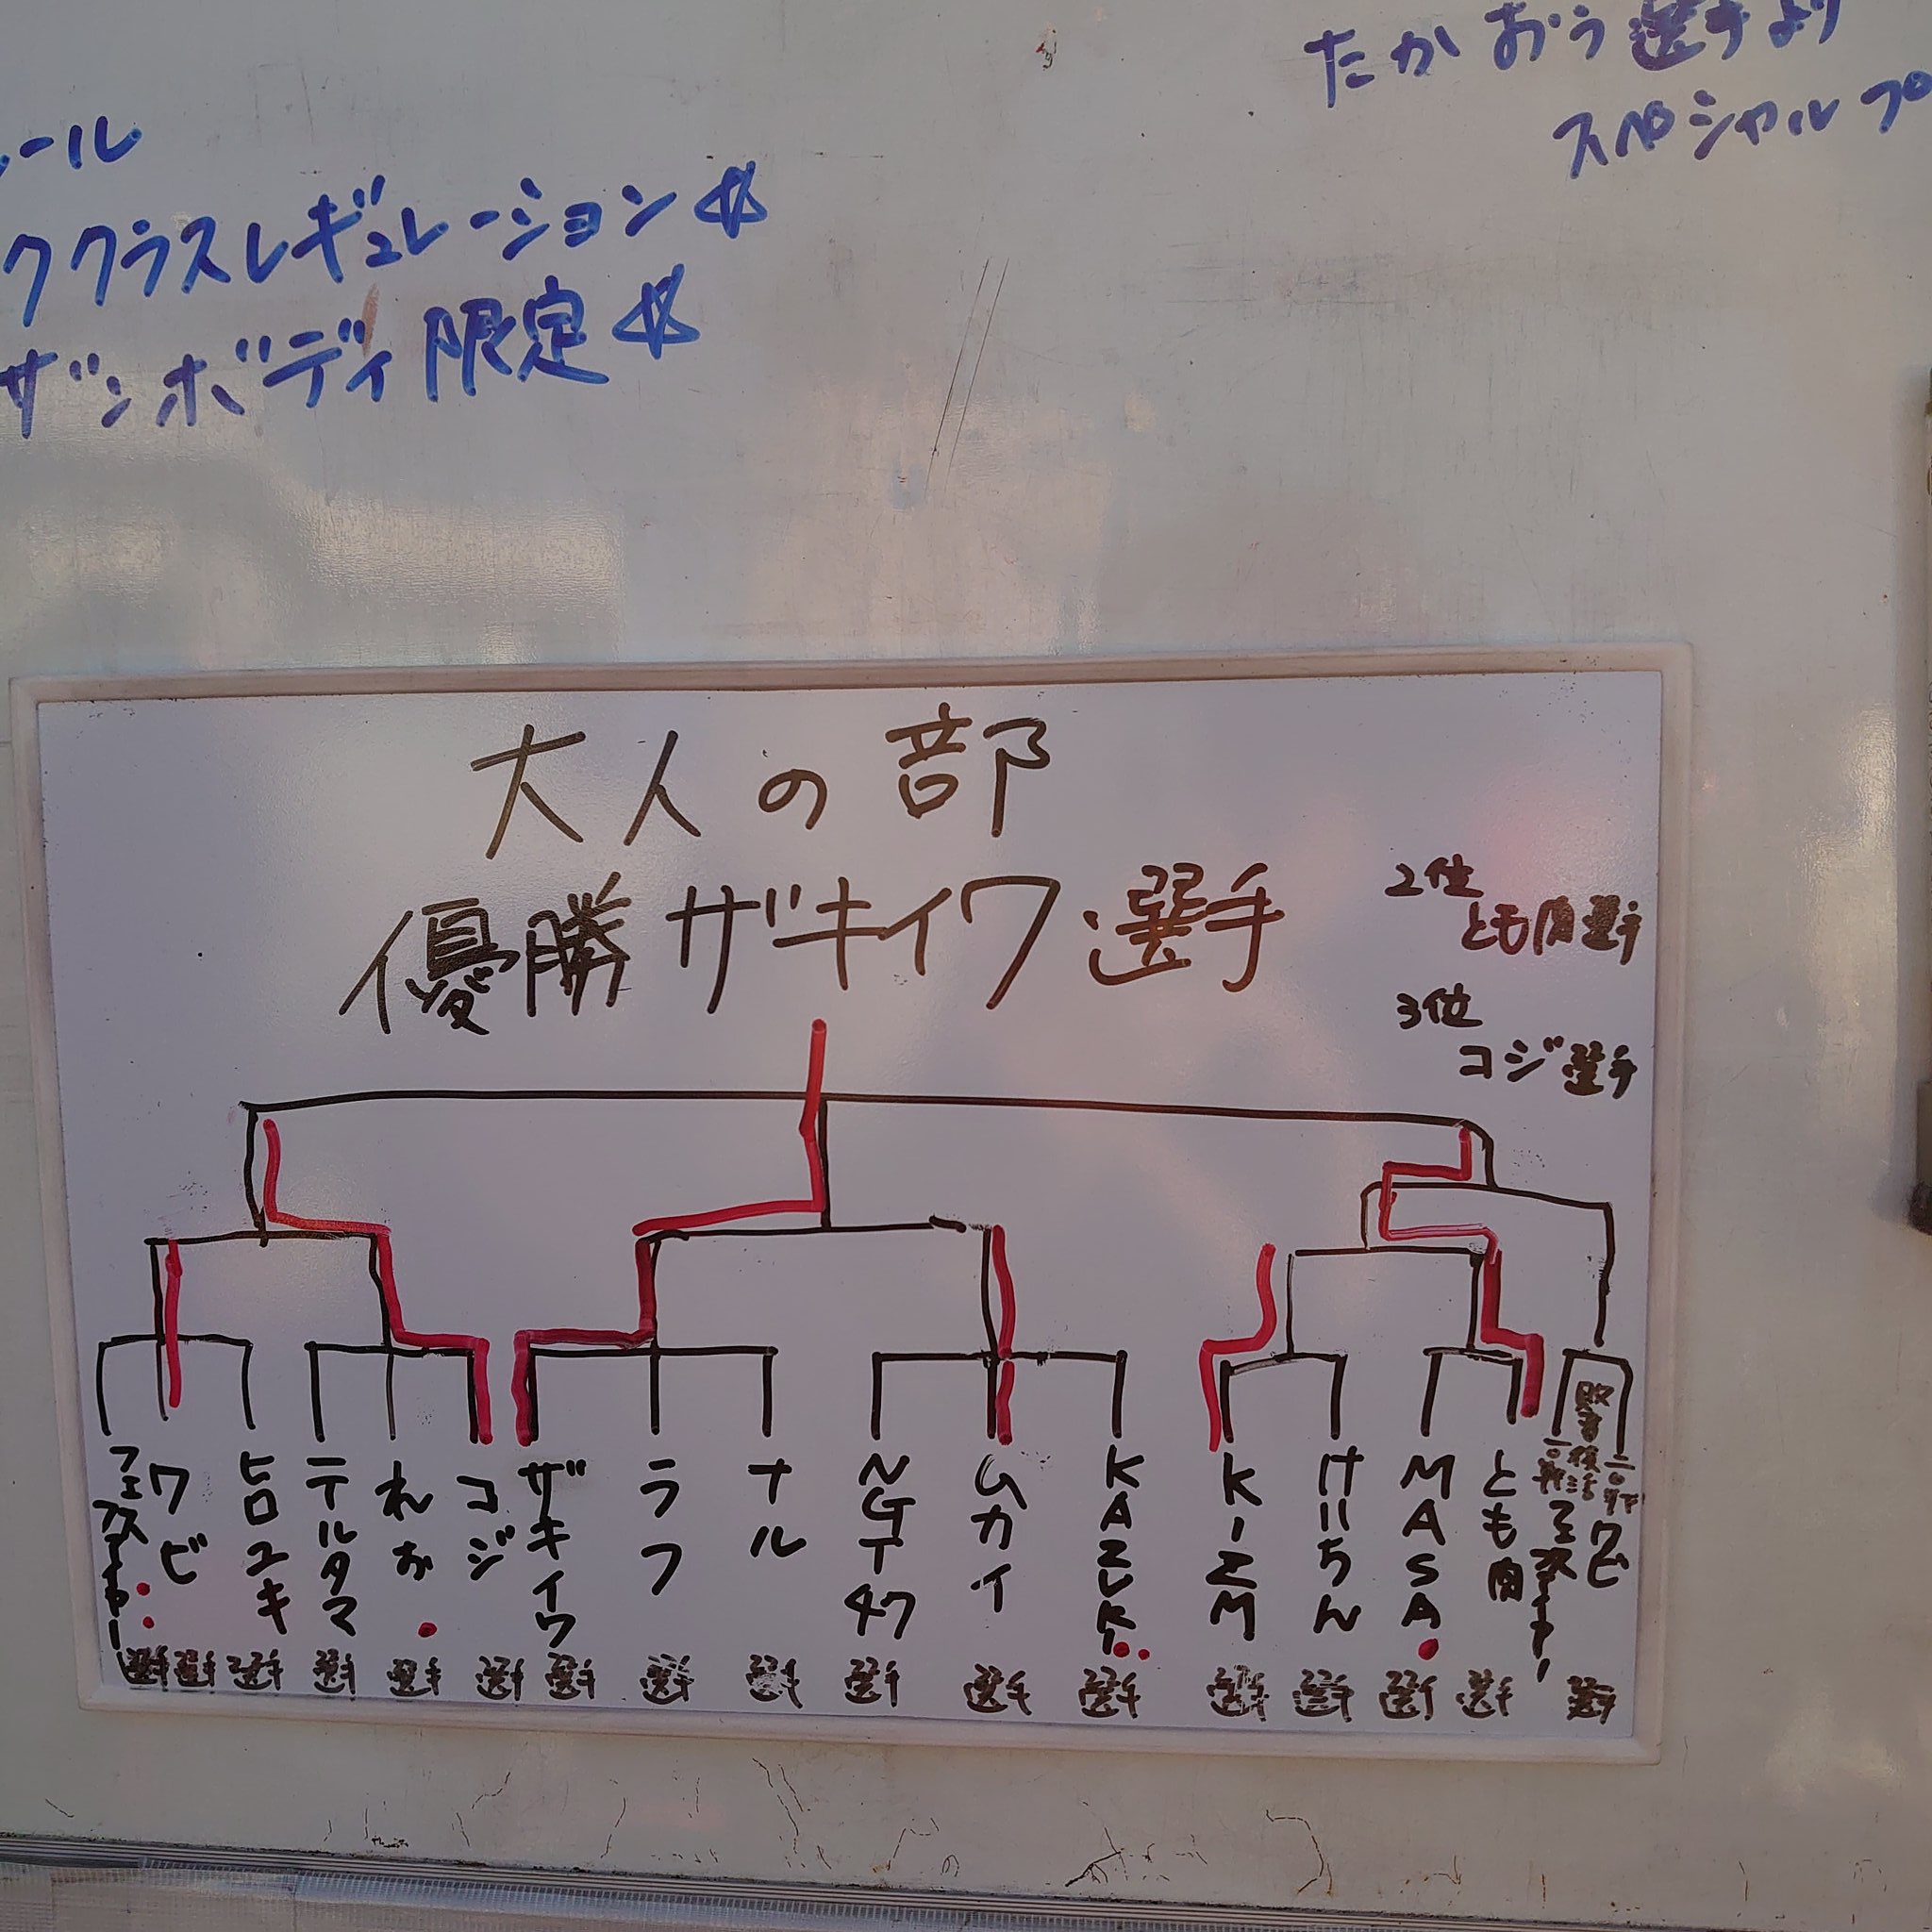 たかおう選手より
スペシャルプ
ール
ククラスレギュレーション☆
ザンボディ限定☆
大人の部
優勝 ザキイワ 選手
2位
とも肉選手
3位
コジ選手
ワビ
選手
ヒロユキ
選手
テルタマ
選手
れお
選手
コジ
選手
ザキイワ
選手
ラフ
選手
ナル
選手
NGT47
選手
ムカイ
選手
KAZUKI
選手
KIZM
選手
けいちん
選手
MASA
選手
とも肉
選手
敗者復活
ワビ
選手